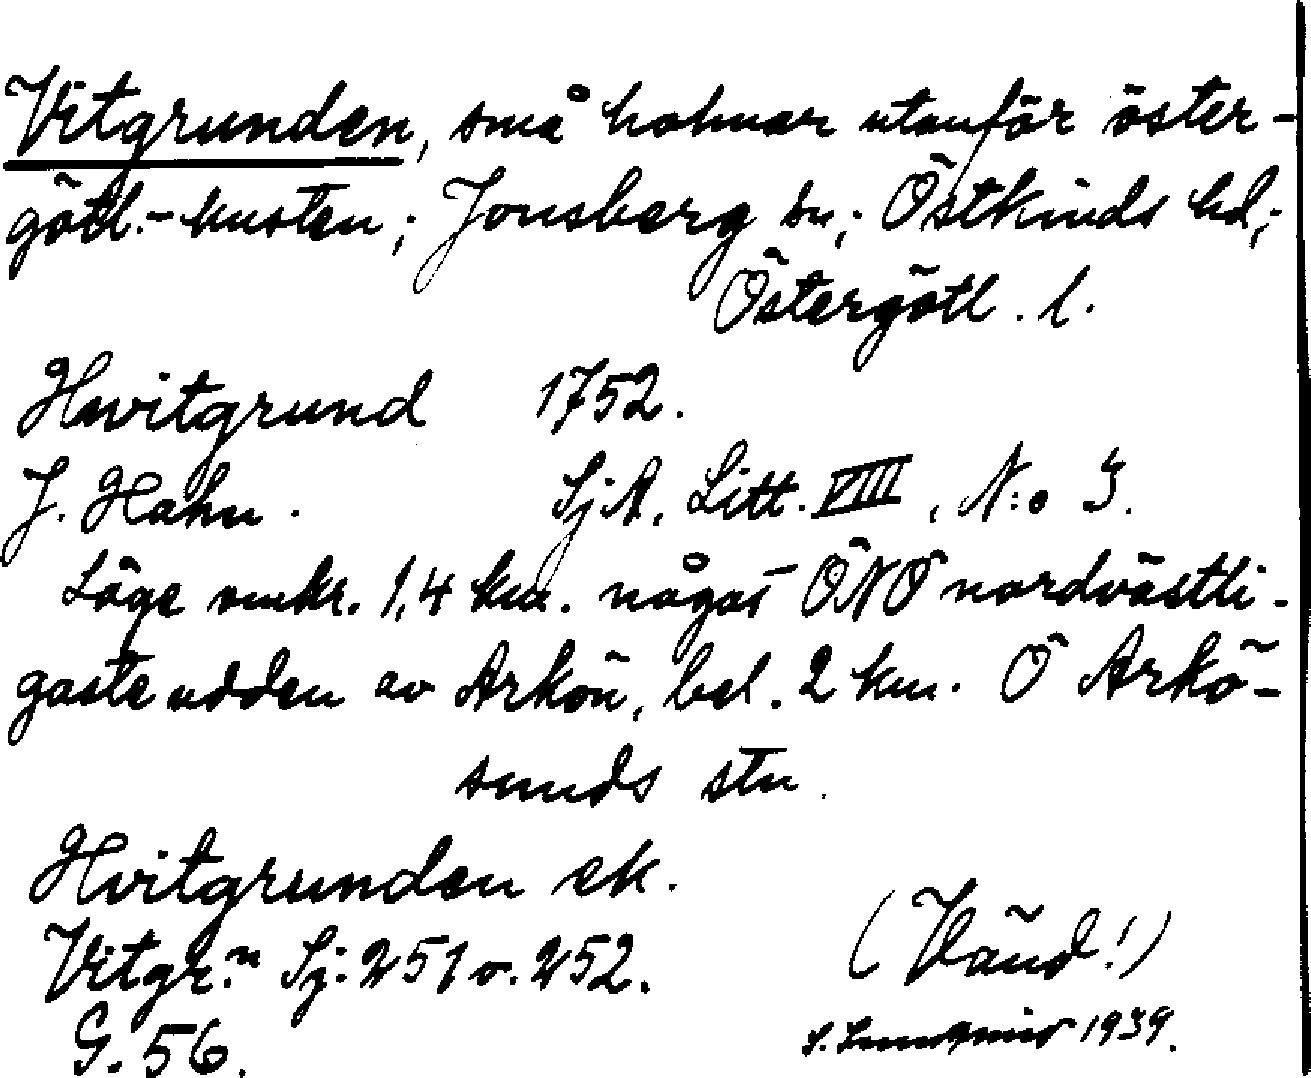 Vitgrunden, små holmar utanför öster-
götl.-kusten; Jonsberg sn; Östkinds hd;
Östergötl. l.
Hwitgrund 1752.
J. Hahn. SjA. Litt. VIII, N:o 3.
Läge omkr. 1,4 km. något ÖNÖ nordvästli-
gaste udden av Arkön, bel. 2 km. Ö Arkö-
sunds stn.
Hvitgrunden ek.
Vitgr:n Sj. 251 o. 252.
G. 56. (Vänd!)
1939.